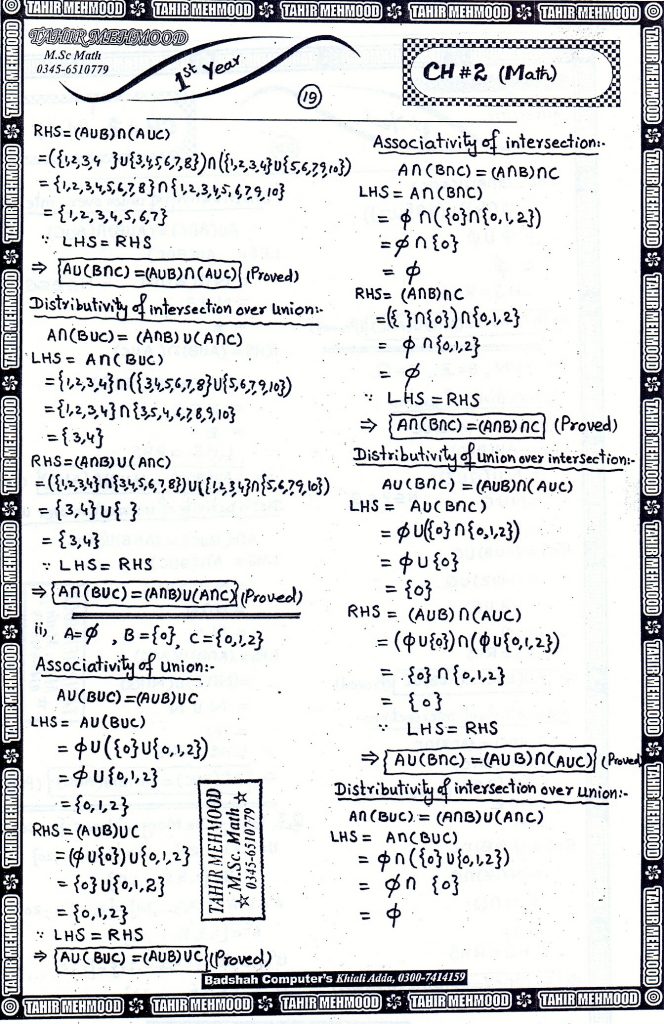 TAHIR MEHMOOD TAHIR MEHMOOD TAHIR MEHMOOD TAHIR MEHMOOD TAHIR MEHMOOD
TAHIR MEHMOOD
M.Sc Math
0345-6510779
1st Year
19
CH #2 (Math)
RHS = (A∪B)∩(A∪C)
=({1,2,3,4 }∪{3,4,5,6,7,8})∩({1,2,3,4}∪{5,6,7,9,10})
= {1,2,3,4,5,6,7,8}∩{1,2,3,4,5,6,7,9,10}
= {1,2,3,4,5,6,7}
∵ LHS = RHS
⇒ A∪(B∩C) =(A∪B)∩(A∪C) (Proved)
Distributivity of intersection over Union:-
A∩(B∪C) = (A∩B)∪(A∩C)
LHS = A∩(B∪C)
={1,2,3,4}∩({3,4,5,6,7,8}∪{5,6,7,9,10})
={1,2,3,4}∩{3,5,4,6,7,8,9,10}
={3,4}
RHS=(A∩B)∪(A∩C)
=({1,2,3,4}∩{3,4,5,6,7,8})∪({1,2,3,4}∩{5,6,7,9,10})
= {3,4}∪{ }
= {3,4}
∵ LHS = RHS
⇒ A∩(B∪C) =(A∩B)∪(A∩C) (Proved)
ii), A=ϕ , B={0}, C={0,1,2}
Associativity of Union:-
A∪(B∪C) =(A∪B)∪C
LHS = A∪(B∪C)
= ϕ∪({0}∪{0,1,2})
= ϕ∪{0,1,2}
= {0,1,2}
RHS = (A∪B)∪C
=(ϕ∪{0})∪{0,1,2}
={0}∪{0,1,2}
={0,1,2}
∵ LHS = RHS
⇒ A∪(B∪C) =(A∪B)∪C (Proved)
TAHIR MEHMOOD
M.Sc. Math
0345-6510779
Associativity of intersection:-
A∩(B∩C) =(A∩B)∩C
LHS = A∩(B∩C)
= ϕ∩({0}∩{0,1,2})
= ϕ∩{0}
= ϕ
RHS= (A∩B)∩C
=({ }∩{0})∩{0,1,2}
= ϕ∩{0,1,2}
= ϕ
∵ LHS = RHS
⇒ A∩(B∩C) =(A∩B)∩C (Proved)
Distributivity of Union over intersection:-
A∪(B∩C) =(A∪B)∩(A∪C)
LHS = A∪(B∩C)
= ϕ∪({0}∩{0,1,2})
= ϕ∪{0}
= {0}
RHS = (A∪B)∩(A∪C)
= (ϕ∪{0})∩(ϕ∪{0,1,2})
= {0}∩{0,1,2}
= {0}
∵ LHS = RHS
⇒ A∪(B∩C) =(A∪B)∩(A∪C) (Proved
Distributivity of intersection over Union:-
A∩(B∪C) =(A∩B)∪(A∩C)
LHS = A∩(B∪C)
= ϕ∩({0}∪{0,1,2})
= ϕ∩ {0}
= ϕ
Badshah Computer's Khiali Adda, 0300-7414159
TAHIR MEHMOOD TAHIR MEHMOOD TAHIR MEHMOOD TAHIR MEHMOOD TAHIR MEHMOOD
TAHIR MEHMOOD TAHIR MEHMOOD TAHIR MEHMOOD TAHIR MEHMOOD TAHIR MEHMOOD TAHIR MEHMOOD TAHIR MEHMOOD TAHIR MEHMOOD
TAHIR MEHMOOD TAHIR MEHMOOD TAHIR MEHMOOD TAHIR MEHMOOD TAHIR MEHMOOD TAHIR MEHMOOD TAHIR MEHMOOD TAHIR MEHMOOD